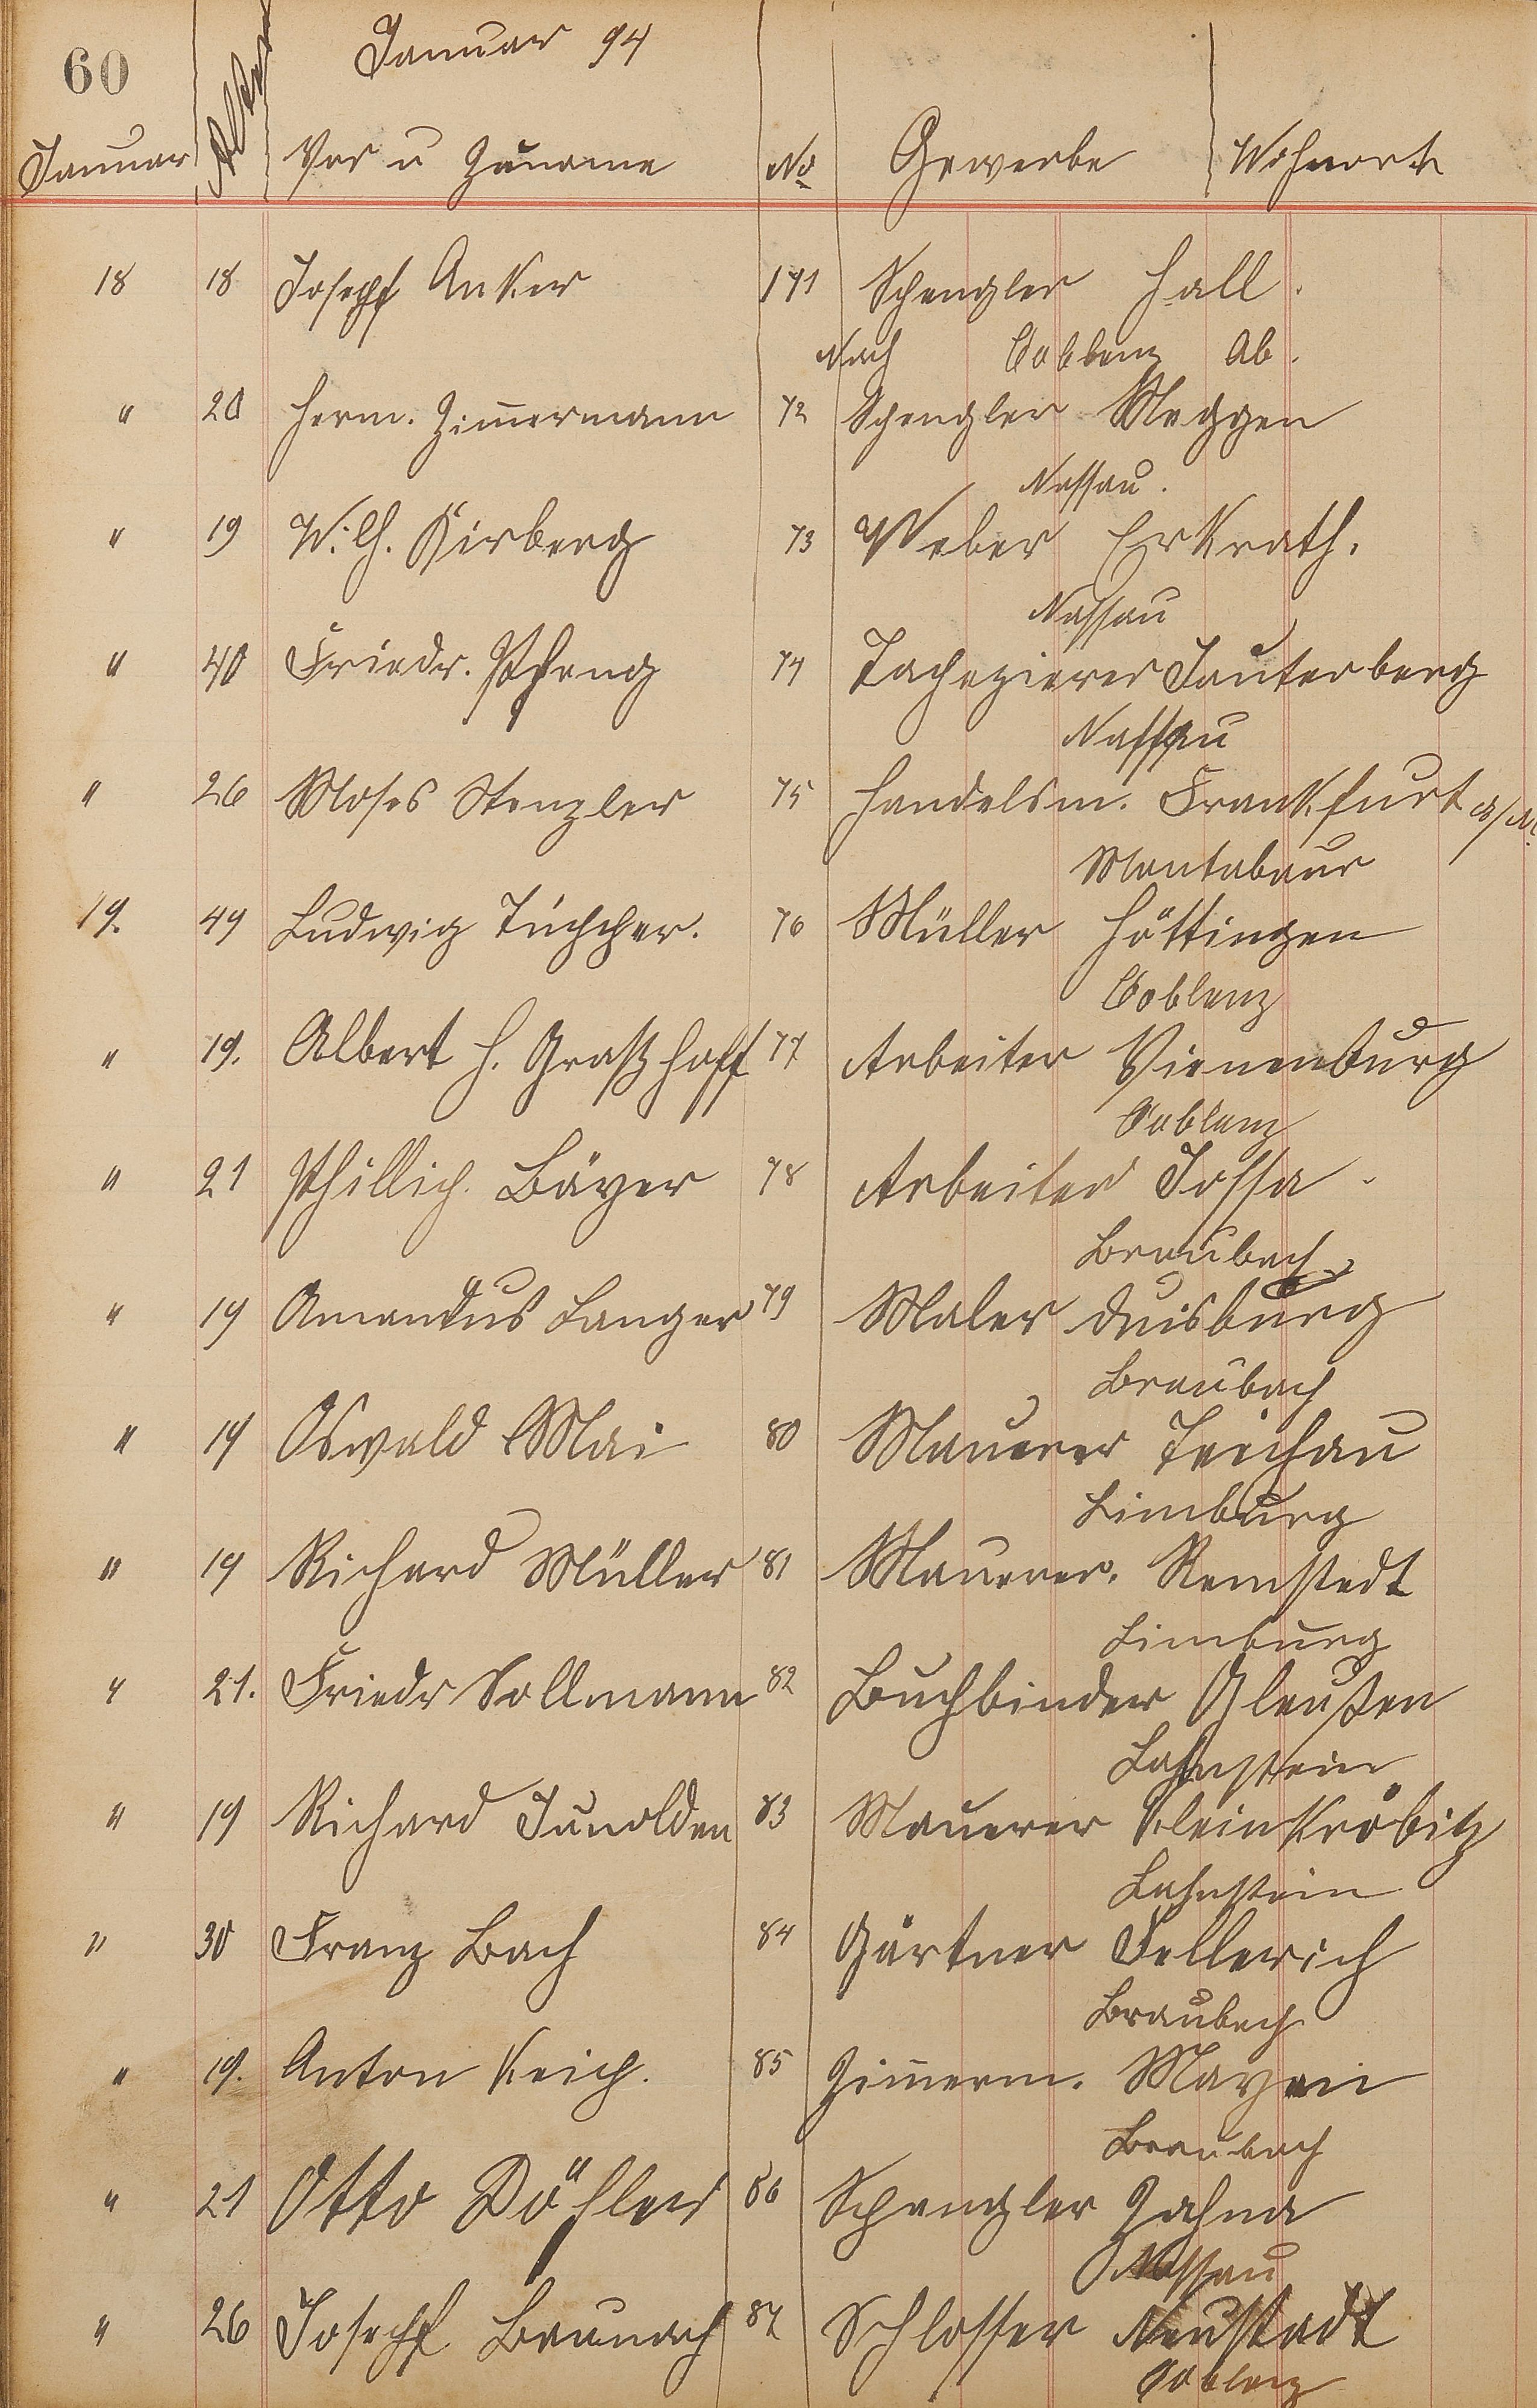 60 Januar 94
Januar Alter Vor u Zuname No Gewerbe Wohnort
18 18 Joseph Anker 171 Spengler Hall.
Nach Coblenz Ab.
" 20 Herm. Zimmermann 72 Spengler Meggen
Nassau.
" 19 Wilh. Kirberg 73 Weber Erkrath.
Nassau
" 40 Friedr. 74 Tapezierer Lauterberg
Nassau
" 26 Moses Stenzler 75 Handelsm. Frankfurt a/M.
Montabaur
19. 49 Ludwig 76 Müller Höttingen
Coblenz
" 19. Albert H. Graßhoff 77 Arbeiter Vienenburg
Coblenz
" 21 Phillip. Bäyer 78 Arbeiter Jossa.
Braubach
" 19 Amandus Langer 79 Maler Duisburg
Braubach
" 19 Oswald Mai 80 Maurer Teichau
Limburg
" 19 Richard Müller 81 Maurer. Remstedt
Limburg
" 21. Friedr Sollmann 82 Buchbinder Gleußen
Lahnstein
" 19 Richard 83 Maurer Kleinkröbitz
Lahnstein
" 30 Franz Bach 84 Gärtner Fellerich
Braubach
" 19. Anton Reich. 85 Zimmerm. Mayen
Braubach
" 21 Otto Döhler 86 Spengler Zahna
Nassau
" 26 Joseph Braunach 87 Schlosser Neustadt
Coblenz